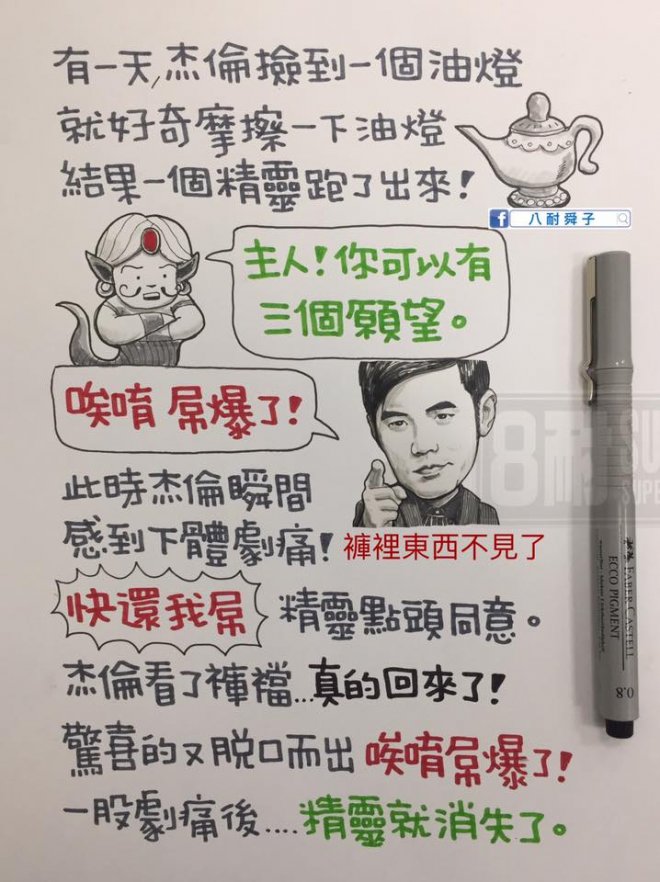 有一天,杰倫撿到一個油燈
就好奇摩擦一下油燈
結果一個精靈跑了出來！
八耐舜子
主人！你可以有
三個願望。
唉唷 屌爆了！
8耐
此時杰倫瞬間
感到下體劇痛！褲裡東西不見了
快還我屌 精靈點頭同意。
杰倫看了褲襠...真的回來了！
驚喜的又脫口而出 唉唷屌爆了！
一股劇痛後....精靈就消失了。
FABER-CASTELL
ECCO PIGMENT
0.8